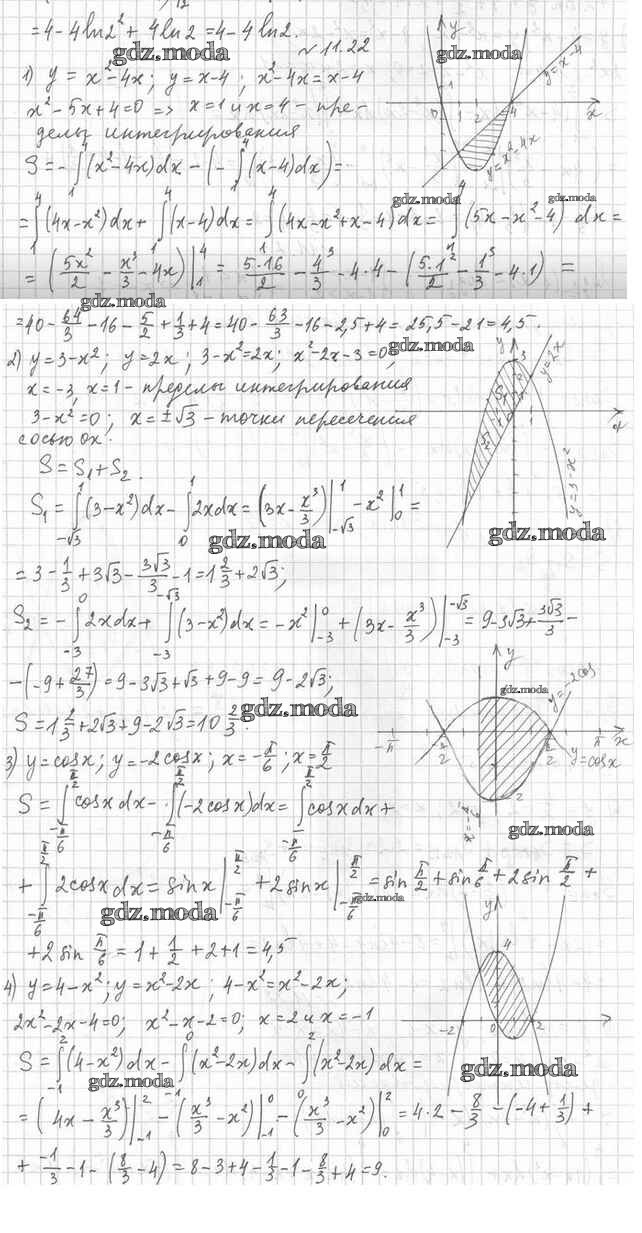 = 4 - 4 ln 2² + 4 ln 2 = 4 - 4 ln 2.
gdz.moda
№ 11.22
gdz.moda
1) y = x² - 4x; y = x - 4; x² - 4x = x - 4
x² - 5x + 4 = 0 => x = 1 и x = 4 - пре-
делы интегрирования
S = -∫₁⁴ (x² - 4x)dx - (-∫₁⁴ (x - 4)dx) =
= ∫₁⁴ (4x - x²)dx + ∫₁⁴ (x - 4)dx = ∫₁⁴ (4x - x² + x - 4)dx = ∫₁⁴ (5x - x² - 4) dx =
= (5x²/2 - x³/3 - 4x)|₁⁴ = 5·16/2 - 4³/3 - 4·4 - (5·1²/2 - 1³/3 - 4·1) =
y
y = x - 4
y = x² - 4x
1
0 1 2 4 x
gdz.moda
gdz.moda
gdz.moda
= 40 - 64/3 - 16 - 5/2 + 1/3 + 4 = 40 - 63/3 - 16 - 2,5 + 4 = 25,5 - 21 = 4,5.
gdz.moda
2) y = 3 - x²; y = 2x; 3 - x² = 2x; x² - 2x - 3 = 0,
x = -3, x = 1 - пределы интегрирования
3 - x² = 0; x = ±√3 - точки пересечения
с осью ox.
S = S₁ + S₂.
S₁ = ∫_{-√3}^1 (3 - x²)dx - ∫₀¹ 2xdx = (3x - x³/3)|_{-√3}^1 - x²|₀¹ =
= 3 - 1/3 + 3√3 - 3√3/3 - 1 = 1 2/3 + 2√3;
S₂ = -∫_{-3}^0 2xdx + ∫_{-3}^{-√3} (3 - x²)dx = -x²|_{-3}^0 + (3x - x³/3)|_{-3}^{-√3} = 9 - 3√3 + 3√3/3 -
- (-9 + 27/3) = 9 - 3√3 + √3 + 9 - 9 = 9 - 2√3;
S = 1 2/3 + 2√3 + 9 - 2√3 = 10 2/3.
y
3
y = 2x
S₂
x
y = 3 - x²
gdz.moda
gdz.moda
gdz.moda
3) y = cosx; y = -2cosx; x = -π/6; x = π/2
S = ∫_{-π/6}^{π/2} cosx dx - ∫_{-π/6}^{π/2} (-2cosx)dx = ∫_{-π/6}^{π/2} cosxdx +
+ ∫_{-π/6}^{π/2} 2cosxdx = sinx|_{-π/6}^{π/2} + 2sinx|_{-π/6}^{π/2} = sin π/2 + sin π/6 + 2sin π/2 +
+ 2 sin π/6 = 1 + 1/2 + 2 + 1 = 4,5
y
gdz.moda
y = -2cos
-π -π/2 π/2 π x
y = cosx
2
gdz.moda
gdz.moda
gdz.moda
4) y = 4 - x²; y = x² - 2x; 4 - x² = x² - 2x;
2x² - 2x - 4 = 0; x² - x - 2 = 0; x = 2 и x = -1
S = ∫_{-1}^2 (4 - x²)dx - ∫_{-1}^0 (x² - 2x)dx - ∫₀² (x² - 2x)dx =
= (4x - x³/3)|_{-1}^2 - (x³/3 - x²)|_{-1}^0 - (x³/3 - x²)|₀² = 4·2 - 8/3 - (-4 + 1/3) +
+ -1/3 - 1 - (8/3 - 4) = 8 - 3 + 4 - 1/3 - 1 - 8/3 + 4 = 9.
y
4
-2 0 2
gdz.moda
gdz.moda